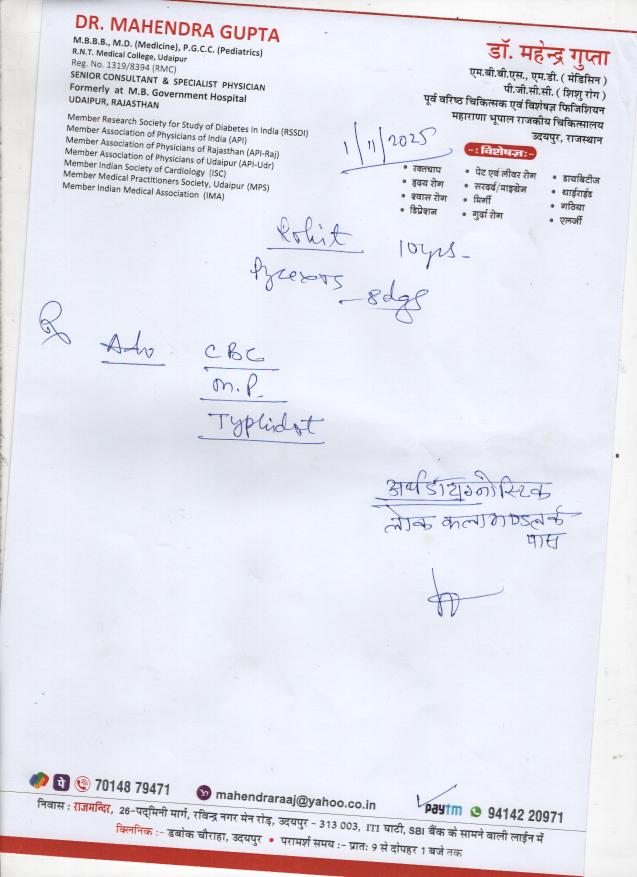 DR. MAHENDRA GUPTA
M.B.B.B., M.D. (Medicine), P.G.C.C. (Pediatrics)
R.N.T. Medical College, Udaipur
Reg. No. 1319/8394 (RMC)
SENIOR CONSULTANT & SPECIALIST PHYSICIAN
Formerly at M.B. Government Hospital
UDAIPUR, RAJASTHAN
Member Research Society for Study of Diabetes In India (RSSDI)
Member Association of Physicians of India (API)
Member Association of Physicians of Rajasthan (API-Raj)
Member Association of Physicians of Udaipur (API-Udr)
Member Indian Society of Cardiology (ISC)
Member Medical Practitioners Society, Udaipur (MPS)
Member Indian Medical Association (IMA)
डॉ. महेन्द्र गुप्ता
एम.बी.बी.एस., एम.डी. ( मेडिसिन )
पी.जी.सी.सी. ( शिशु रोग )
पूर्व वरिष्ठ चिकित्सक एवं विशेषज्ञ फिजिशियन
महाराणा भूपाल राजकीय चिकित्सालय
उदयपुर, राजस्थान
1/11/2025
-: विशेषज्ञ:-
• रक्तचाप • पेट एवं लीवर रोग • डायबिटीज
• हृदय रोग • सरदर्द/माइग्रेन • थाईराईड
• श्वास रोग • मिर्गी • गठिया
• डिप्रेशन • गुर्दा रोग • एलर्जी
Rohit 10yrs-
- 8dys
Rx
Adv CBC
M.P.
Typhidot
अर्थ डायग्नोस्टिक
लोक कला मण्डल के
पास
70148 79471 mahendraraaj@yahoo.co.in paytm 94142 20971
निवास : राजमन्दिर, 26-पद्मिनी मार्ग, रविन्द्र नगर मेन रोड़, उदयपुर - 313 003, ITI घाटी, SBI बैंक के सामने वाली लाईन में
क्लिनिक :- डबोक चौराहा, उदयपुर • परामर्श समय :- प्रातः 9 से दोपहर 1 बजे तक